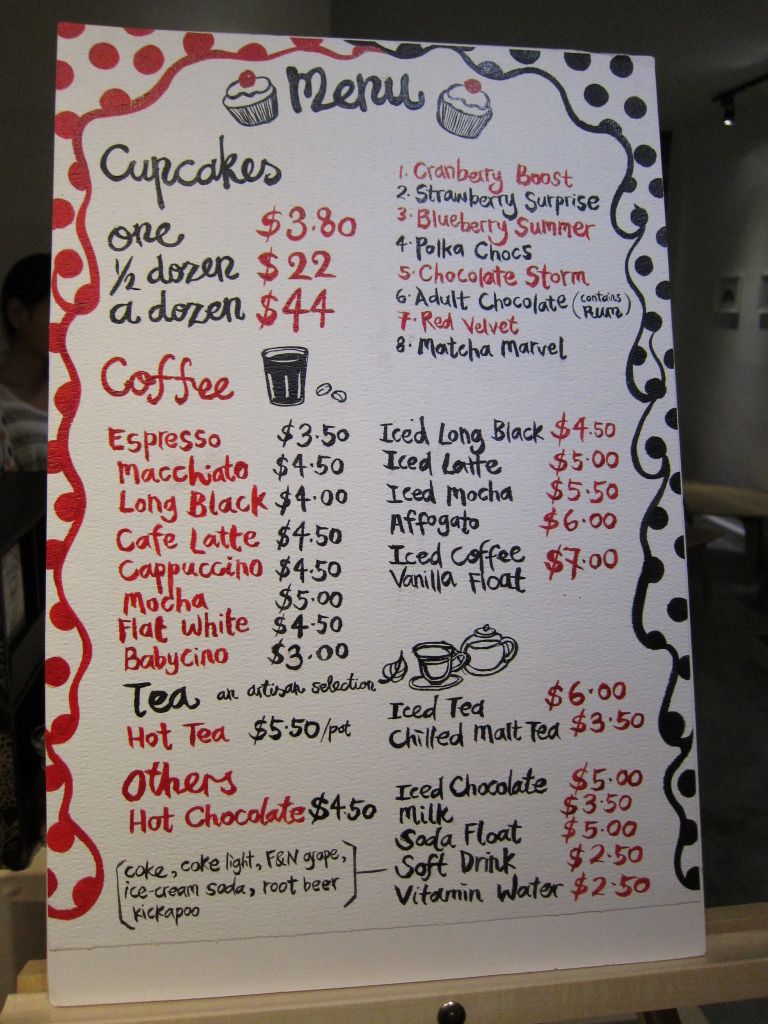 Menu
Cupcakes
one $3.80
1/2 dozen $22
a dozen $44
1. Cranberry Boost
2. Strawberry Surprise
3. Blueberry Summer
4. Polka Chocs
5. Chocolate Storm
6. Adult Chocolate (contains Rum)
7. Red Velvet
8. Matcha Marvel
Coffee
Espresso $3.50
Macchiato $4.50
Long Black $4.00
Cafe Latte $4.50
Cappuccino $4.50
Mocha $5.00
Flat White $4.50
Babycino $3.00
Iced Long Black $4.50
Iced Latte $5.00
Iced Mocha $5.50
Affogato $6.00
Iced Coffee
Vanilla Float $7.00
Tea an artisan selection
Hot Tea $5.50/pot
Iced Tea $6.00
Chilled Malt Tea $3.50
Others
Hot Chocolate $4.50
Iced Chocolate $5.00
Milk $3.50
Soda Float $5.00
Soft Drink $2.50
Vitamin Water $2.50
coke, coke light, F&N grape,
ice-cream soda, root beer
kickapoo